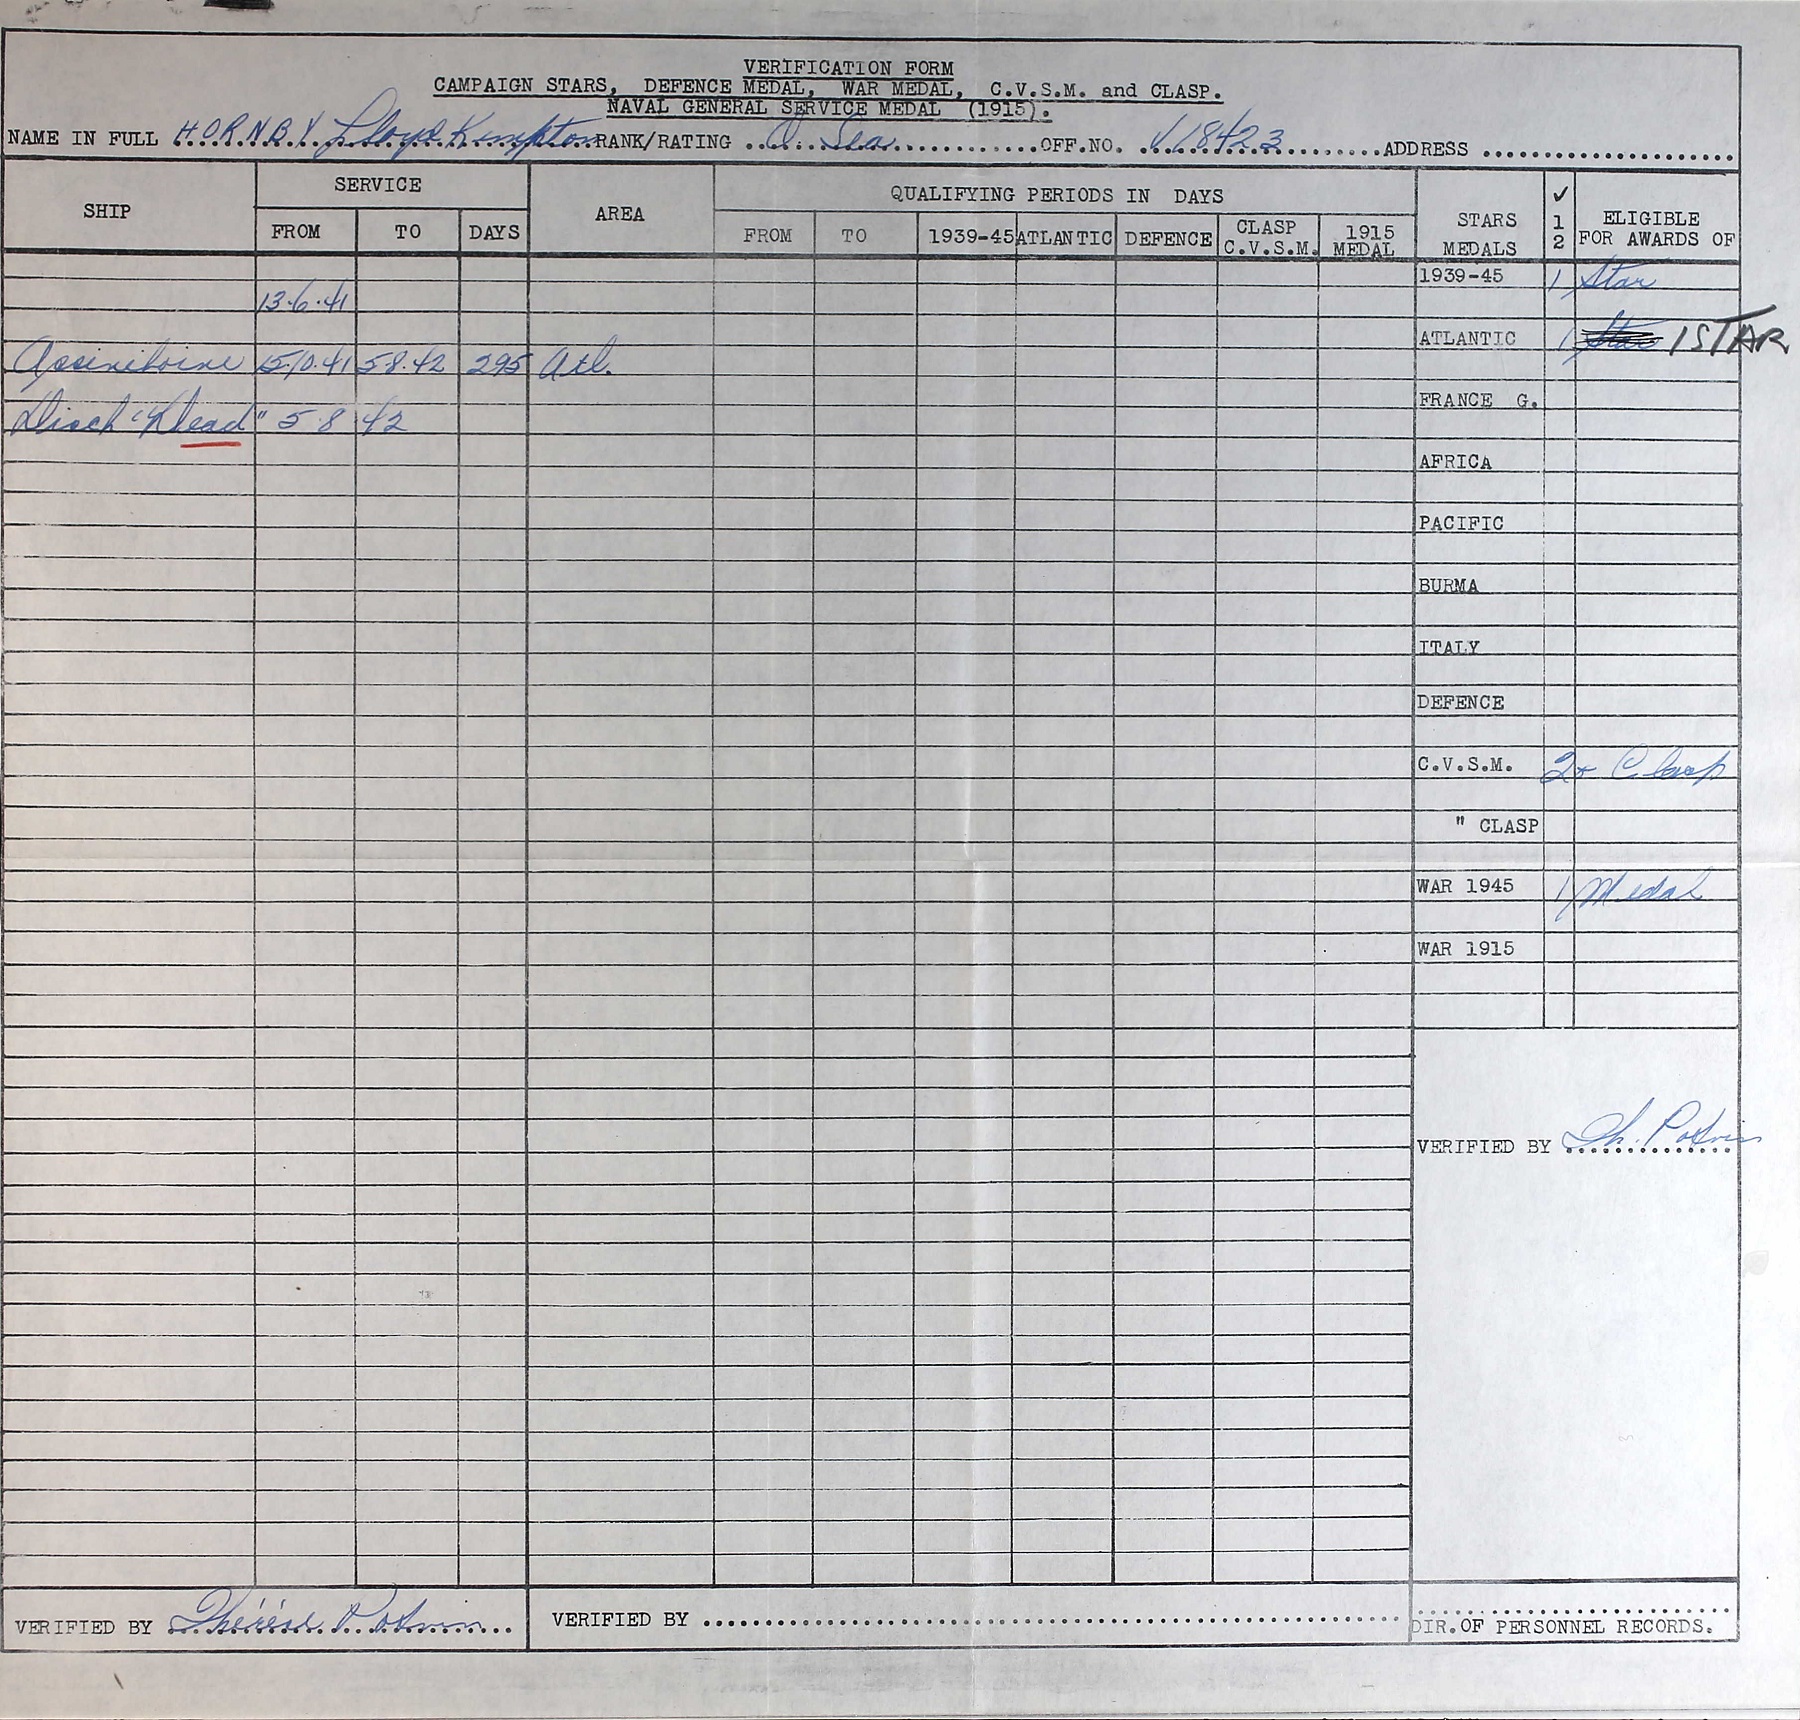 VERIFICATION FORM
CAMPAIGN STARS, DEFENCE MEDAL, WAR MEDAL, C.V.S.M. and CLASP.
NAVAL GENERAL SERVICE MEDAL (1915).
NAME IN FULL HORNBY Lloyd Kempton RANK/RATING O. Sea OFF.NO. V18423 ADDRESS
SHIP SERVICE AREA QUALIFYING PERIODS IN DAYS STARS MEDALS ✓ 1 2 ELIGIBLE FOR AWARDS OF
FROM TO DAYS FROM TO 1939-45 ATLANTIC DEFENCE CLASP C.V.S.M. 1915 MEDAL
1939-45 1 Star
13.6.41
ATLANTIC 1 Star 1 STAR
Assiniboine 15.10.41 5.8.42 295 Atl.
FRANCE G.
Disch "Dead" 5 8 42
AFRICA
PACIFIC
BURMA
ITALY
DEFENCE
C.V.S.M. 2+ Clasp
" CLASP
WAR 1945 1 Medal
WAR 1915
VERIFIED BY Th. Potvin
VERIFIED BY Thérèse Potvin VERIFIED BY
DIR. OF PERSONNEL RECORDS.